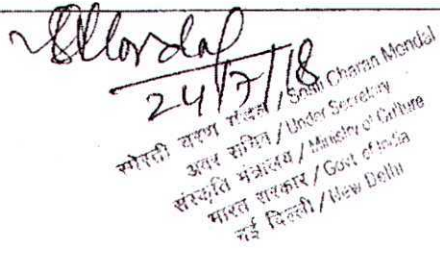 SMondal
24/7/18
चरण मंडल / Smriti Charan Mondal
अवर सचिव / Under Secretary
संस्कृति मंत्रालय / Ministry of Culture
भारत सरकार / Govt of India
नई दिल्ली / New Delhi